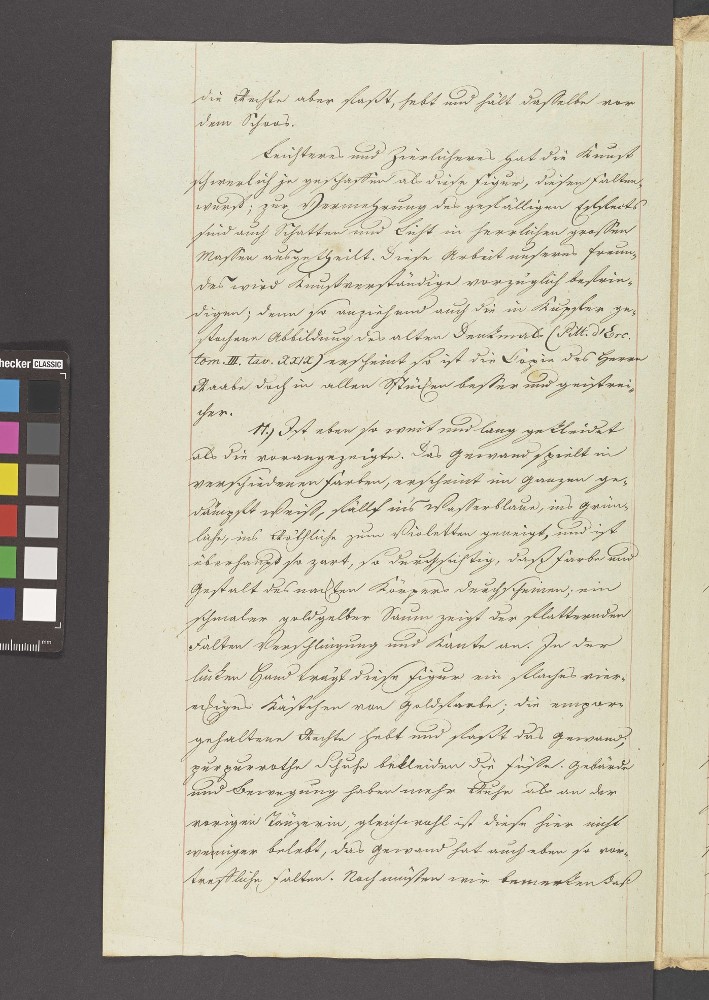 die Rechte aber faßt, hebt und hält dasselbe vor
dem Schoos.
Leichteres und Zierlicheres hat die Kunst
schwerlich je geschaffen als diese Figur, diesen Falten-
wurf; zur Vermehrung des gefälligen Effekts
sind auch Schatten und Licht in herrlichen grossen
Massen ausgetheilt. Diese Arbeit unseres Freun-
des wird Kunstverständige vorzüglich befrie-
digen; denn so anziehend auch die in Kupfer ge-
stochene Abbildung des alten Denkmals (Pitt. d'Erc.
tom. III. tav. XXIX) erscheint so ist die Copie des Herrn
Raabe doch in allen Stücken besser und geistrei-
cher.
11.) Ist eben so weit und lang gekleidet
als die vorangezeigte. Das Gewand spielt in
verschiedenen Farben, erscheint im Ganzen ge-
dämpft weiß, fällt in's Wasserblaue, ins Grün-
liche, ins Röthliche zum Violetten geneigt, und ist
überhaupt so zart, so durchsichtig, daß Farbe und
Gestalt des nackten Körpers durchscheinen; ein
schmaler goldgelber Saum zeigt der flatternden
Falten Verschlingung und Kante an. In der
linken Hand trägt diese Figur ein flaches vier-
eckiges Kästchen von Goldfarbe; die empor-
gehaltene Rechte hebt und faßt das Gewand,
purpurrothe Schuhe bekleiden die Füsse. Gebärde
und Bewegung haben mehr Ruhe als an der
vorigen Tänzerin, gleichwohl ist diese hier nicht
weniger belebt, das Gewand hat auch eben so vor-
treffliche Falten. Noch müssen wir bemerken daß